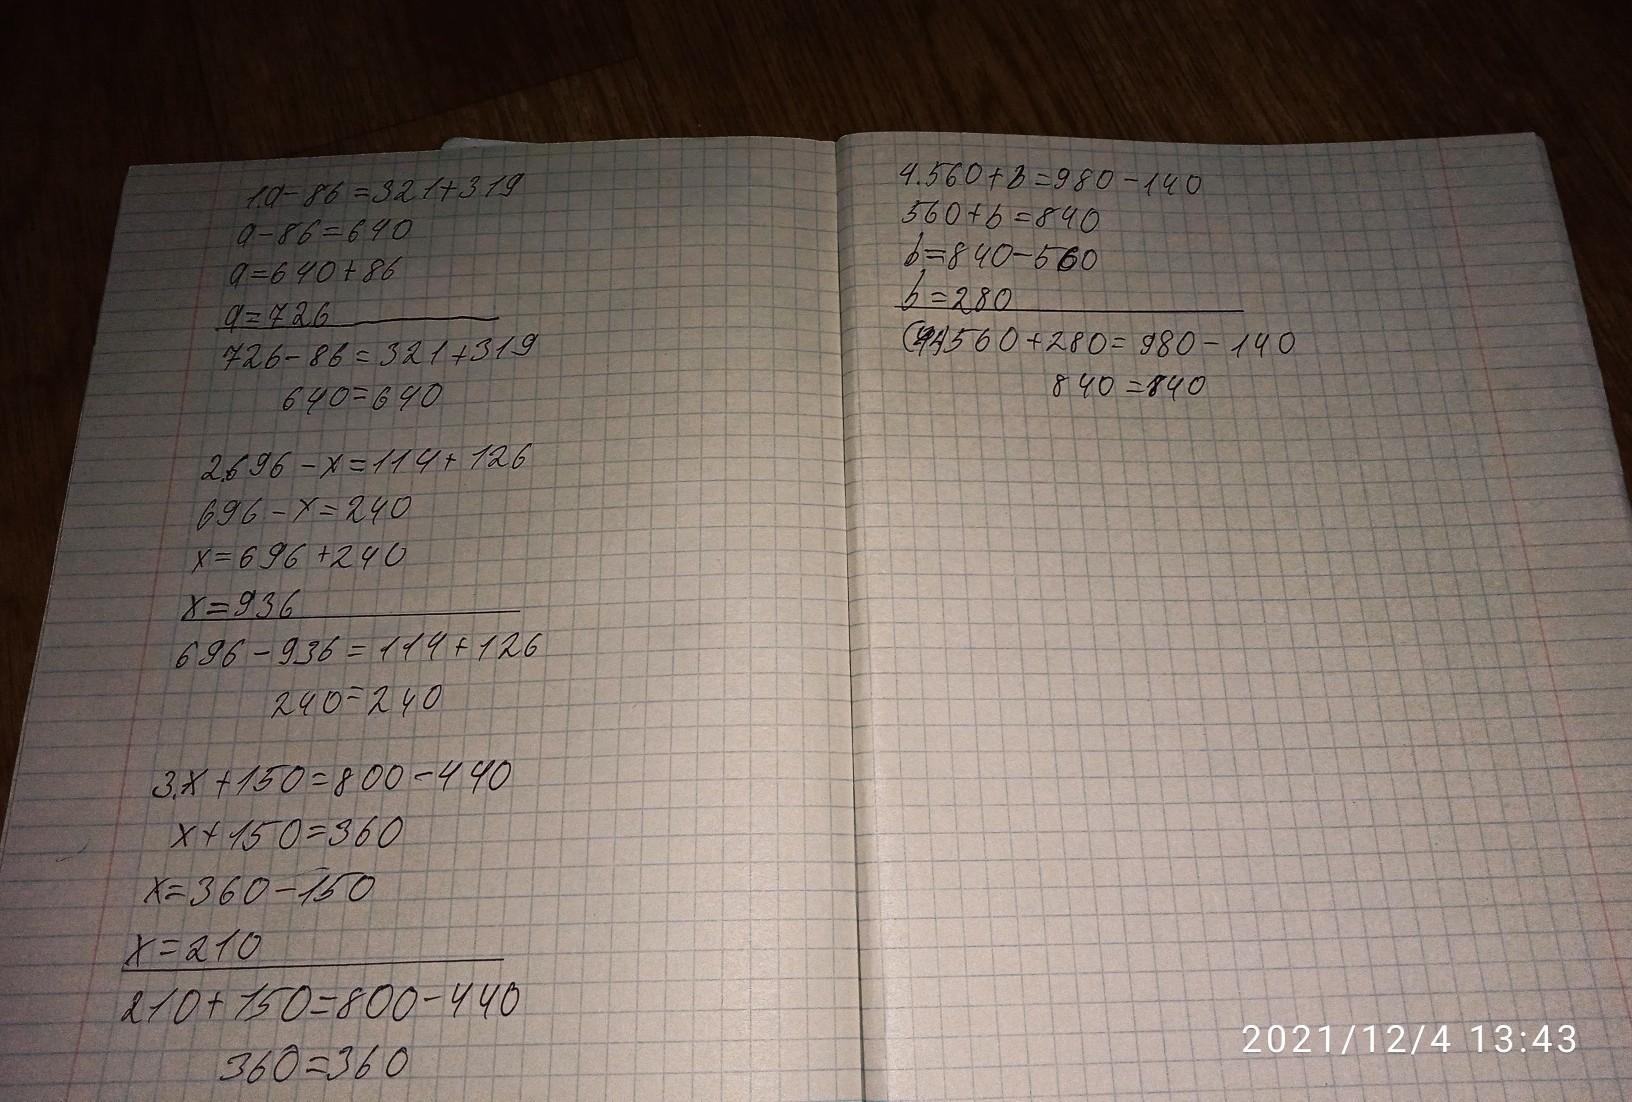 1.a-86=321+319
a-86=640
a=640+86
a=726
726-86=321+319
640=640
2.696-x=114+126
696-x=240
x=696+240
x=936
696-936=114+126
240=240
3.x+150=800-440
x+150=360
x=360-150
x=210
210+150=800-440
360=360
4.560+b=980-140
560+b=840
b=840-560
b=280
560+280=980-140
840=840
2021/12/4 13:43